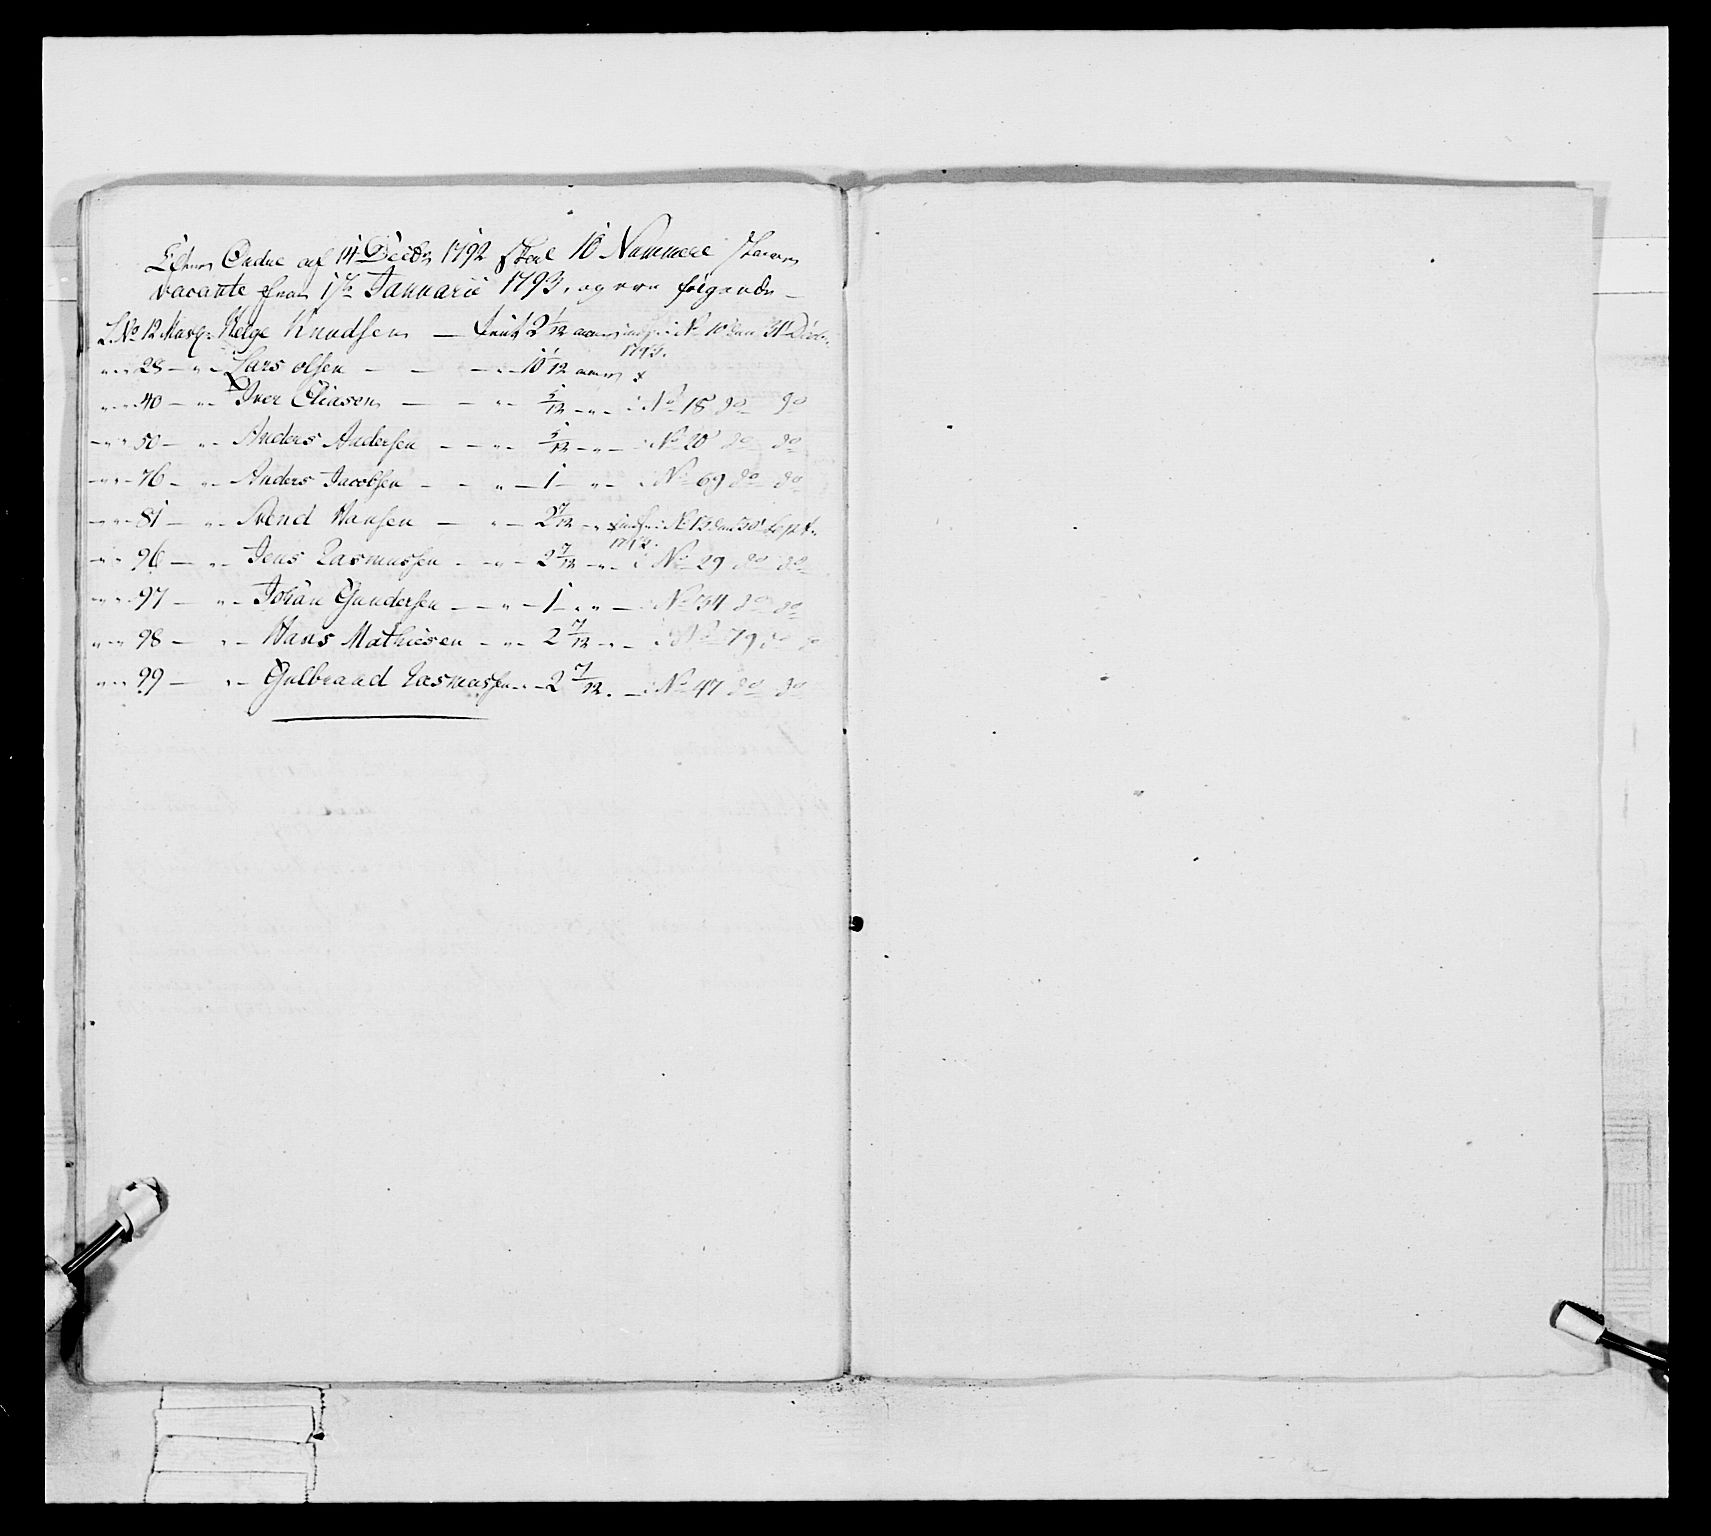 Efter Ordre af 14 Decbr 1792 skal 10 Nummere staae
vacante fra 1ste Januarii 1793, og ere følgende
L. No 12 Helge Knudsen — tient 2 1/12 aar i No 10 den 31 Decbr
1793.
" " 28 — " — Lars Olsen — — — " — 10 1/12 aar
" " 40 — " — Iver Eliasen — — " — 5/12 — " — i No 18 do do
" " 50 — " — Anders Andersen — — " — 5/12 — " — i No 20 do do
" " 76 — " — Anders Jacobsen — — " — 1 — " — i No 69 do do
" " 81 — " — Svend Hansen — " — 2 7/12 — " — i No 13 den 30 Sept.
" " 96 — " — Jens Rasmussen — " — 2 7/12 — " — i No 29 do do
" " 97 — " — Johan Gundersen — — " — 1 — " — i No 34 do do
" " 98 — " — Hans Mathiesen — " — 2 7/12 — " — i No 79 do do
" " 99 — " — Gulbrand Rasmussen — 2 7/12. — i No 47 do do